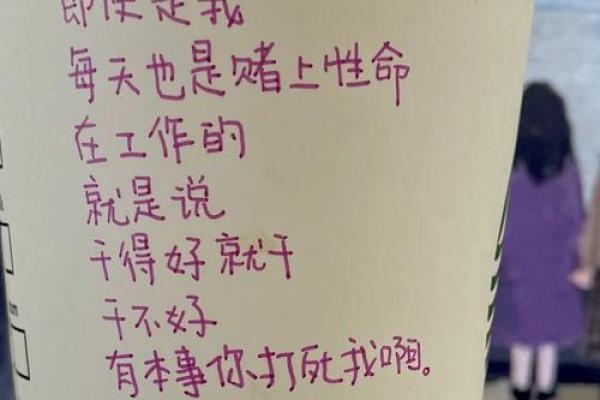 即使是我
每天也是赌上性命
在工作的
就是说
干得好就干
干不好
有本事你打死我啊。